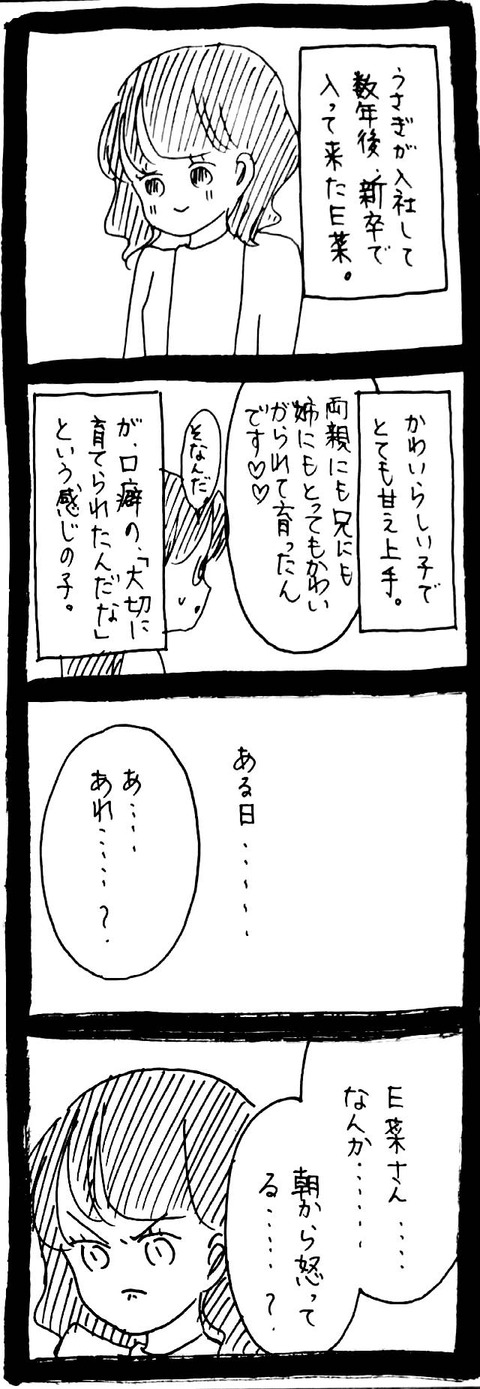 うさぎが入社して
数年後、新卒で
入って来たE菜。
かわいらしい子で
とても甘え上手。
両親にも兄にも
姉にもとってもかわい
がられて育ったん
です♡♡
そなんだ
が、口癖の、「大切に
育てられたんだな」
という感じの子。
ある日......
あ....
あれ......?
E菜さん....
なんか......
朝から怒って
る.....?